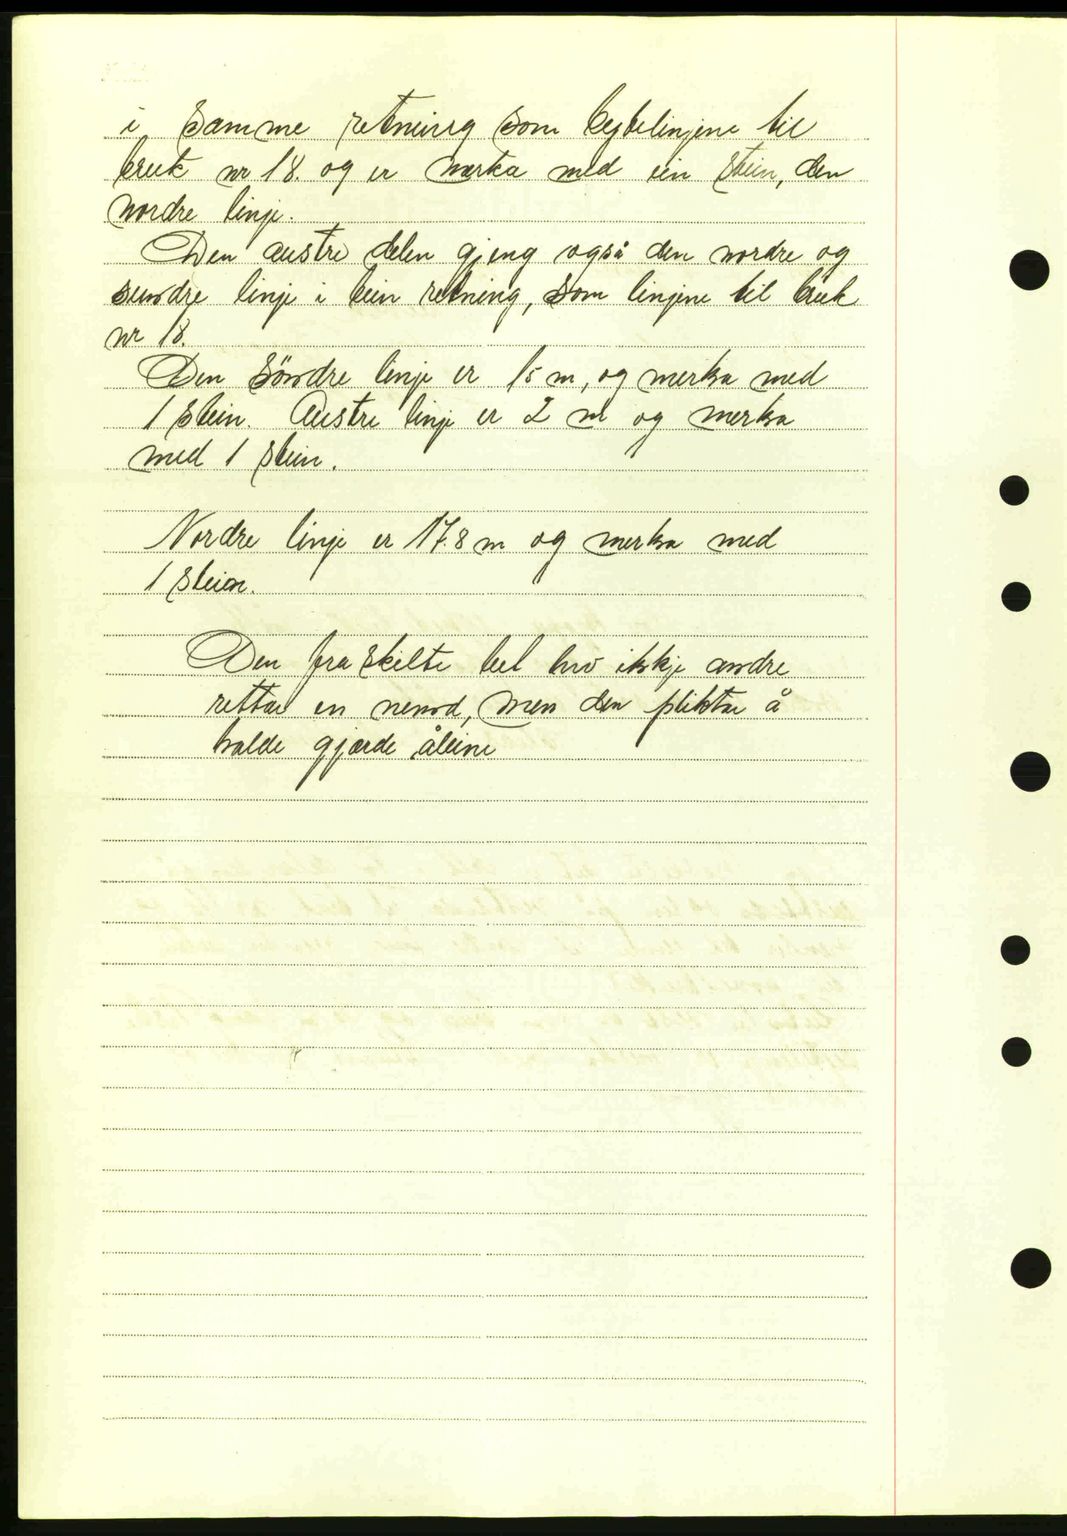 i samme retning som bytelinjene til
bruk nr 18. og er merka med ein stein, den
nordre linje.
Den austre delen gjeng også den nordre og
sundre linje i bein retning, som linjene til bruk
nr 18.
Den søndre linje er 15 m, og merka med
1 stein. Austre linje er 2 m og merka
med 1 stein.
Nordre linje er 17.8 m og merka med
1 stein.
Den fraskilte del hev ikkje andre
rettar en nemnd, men den pliktar å
halde gjærde åleine